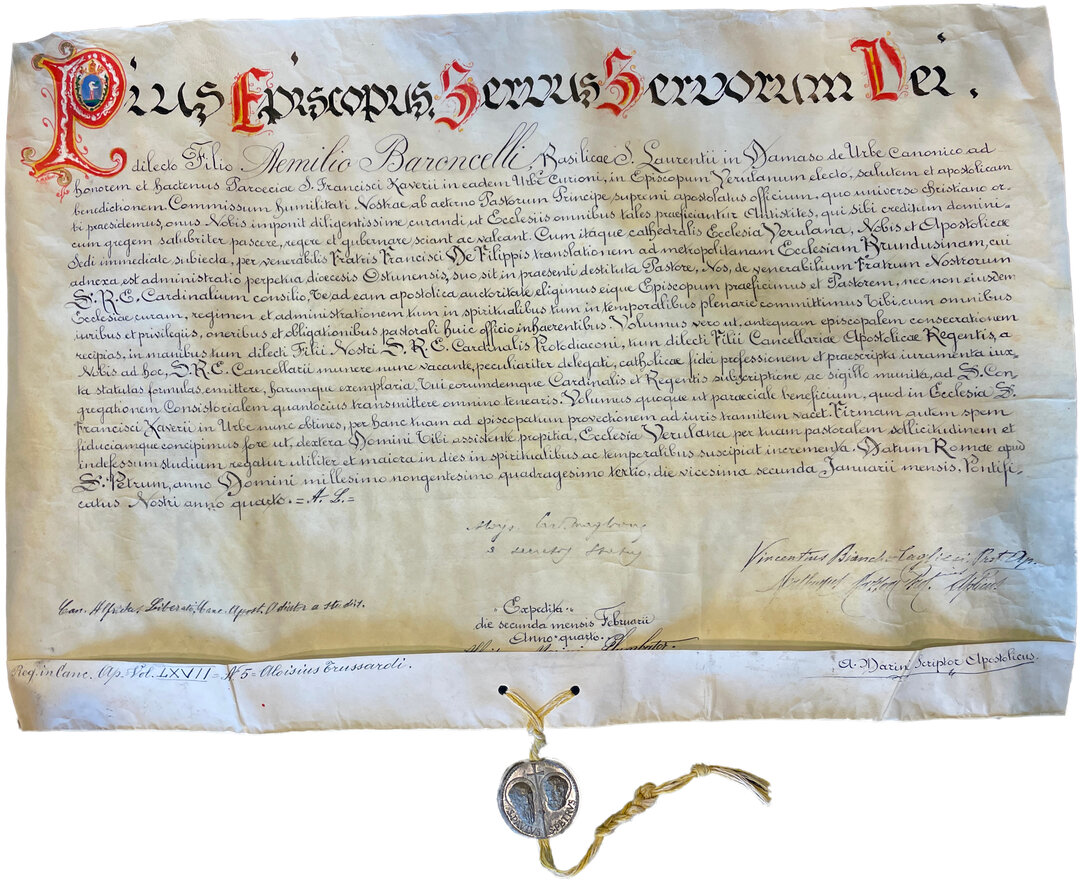 Pius Episcopus Servus Servorum Dei.
dilecto Filio Aemilio Baroncelli, Basilicae S. Laurentii in Damaso de Urbe Canonico ad
honorem et hactenus Paroeciae S. Francisci Xaverii in eadem Urbe Curioni, in Episcopum Verulanum electo, salutem et apostolicam
benedictionem. Commissum humilitati Nostrae ab aeterno Pastorum Principe supremi apostolatus officium, quo universo christiano or-
bi praesidemus, onus Nobis imponit diligentissime curandi ut Ecclesiis omnibus tales praeficiantur Antistites, qui sibi creditum domini-
cum gregem salubriter pascere, regere et gubernare sciant ac valeant. Cum itaque cathedralis Ecclesia Verulana, Nobis et Apostolicae
Sedi immediate subiecta, per venerabilis Fratris Francisci De Filippis translationem ad metropolitanam Ecclesiam Brundusinam, cui
adnexa est administratio perpetua dioecesis Ostunensis, suo sit in praesenti destituta Pastore, Nos, de venerabilium Fratrum Nostrorum
S. R. E. Cardinalium consilio, Te ad eam apostolica auctoritate eligimus eique Episcopum praeficimus et Pastorem, nec non eiusdem
Ecclesiae curam, regimen et administrationem tum in spiritualibus tum in temporalibus plenarie committimus Tibi, cum omnibus
iuribus et privilegiis, oneribus et obligationibus pastorali huic officio inhaerentibus. Volumus vero ut, antequam episcopalem consecrationem
recipias, in manibus tum dilecti Filii Nostri S. R. E. Cardinalis Protodiaconi, tum dilecti Filii Cancellariae Apostolicae Regentis, a
Nobis ad hoc, S. R. E. Cancellarii munere nunc vacante, peculiariter delegati, catholicae fidei professionem et praescripta iuramenta iux-
ta statutas formulas emittere, harumque exemplaria, Tui eorumdemque Cardinalis et Regentis subscriptione ac sigillo munita, ad S. Con-
gregationem Consistorialem quantocius transmittere omnino tenearis. Volumus quoque ut paroeciale beneficium, quod in Ecclesia S.
Francisci Xaverii in Urbe nunc obtines, per hanc tuam ad episcopatum provectionem ad iuris tramitem vacet. Firmam autem spem
fiduciamque concipimus fore ut, dextera Domini Tibi assistente propitia, Ecclesia Verulana per tuam pastoralem sollicitudinem et
indefessum studium regatur utiliter et maiora in dies in spiritualibus ac temporalibus suscipiat incrementa. Datum Romae apud
S. Petrum, anno Domini millesimo nongentesimo quadragesimo tertio, die vicesima secunda Januarii mensis, Pontifi-
catus Nostri anno quarto. = A. L. =
Aloys. Card. Maglione
a secretis Status
Vincentius Bianchi Cagliesi, Prot. Ap.
Can. Alfridus Liberati, Canc. Apost.
Expedita
die secunda mensis Februarii
Anno quarto
Plumbator
Reg. in Canc. Ap. Vol. LXVII = N. 5 = Aloisius Trussardi.
A. Marin Scriptor Apostolicus.
S. PAVLVS S. PETRVS